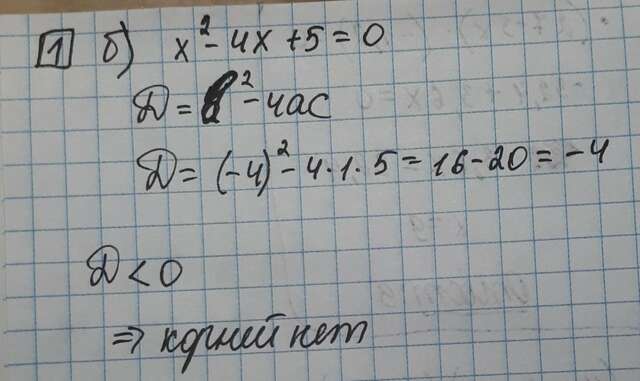 1 б) x² - 4x + 5 = 0
D = b² - 4ac
D = (-4)² - 4·1·5 = 16 - 20 = -4
D < 0
⇒ корней нет